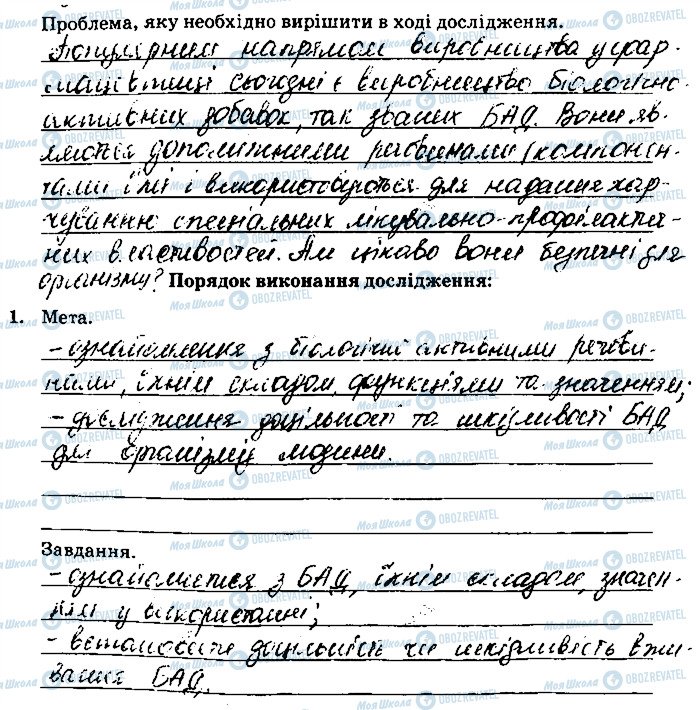 Проблема, яку необхідно вирішити в ході дослідження.
Популярним напрямом виробництва у фар-
мацевтиці сьогодні є виробництво біологічно
активних добавок, так званих БАД. Вони яв-
ляються допоміжними речовинами (компонен-
тами їжі і використовуються для надання хар-
чуванню спеціальних лікувально-профілакти-
чних властивостей. Ам цікаво вони безпечні для
організму? Порядок виконання дослідження:
1. Мета.
- ознайомлення з біологічні активними речови-
нами, їхнім складом, функціями та значенням;
- дослідження доцільності та шкідливості БАД
для організму людини.
Завдання.
- ознайомитися з БАД, їхнім складом, значен-
ням у використанні;
- встановити доцільність чи шкідливість вжи-
вання БАД.
МОЯ ШКОЛА OBOZREVATEL